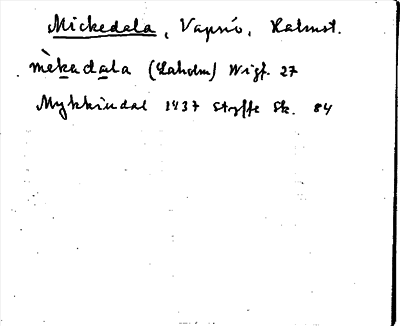 Mickedala, Vapnö, Halmst.
mèkadala (Laholm) Wigf. 27
Mykkindal 1437 Styffe Sk. 84